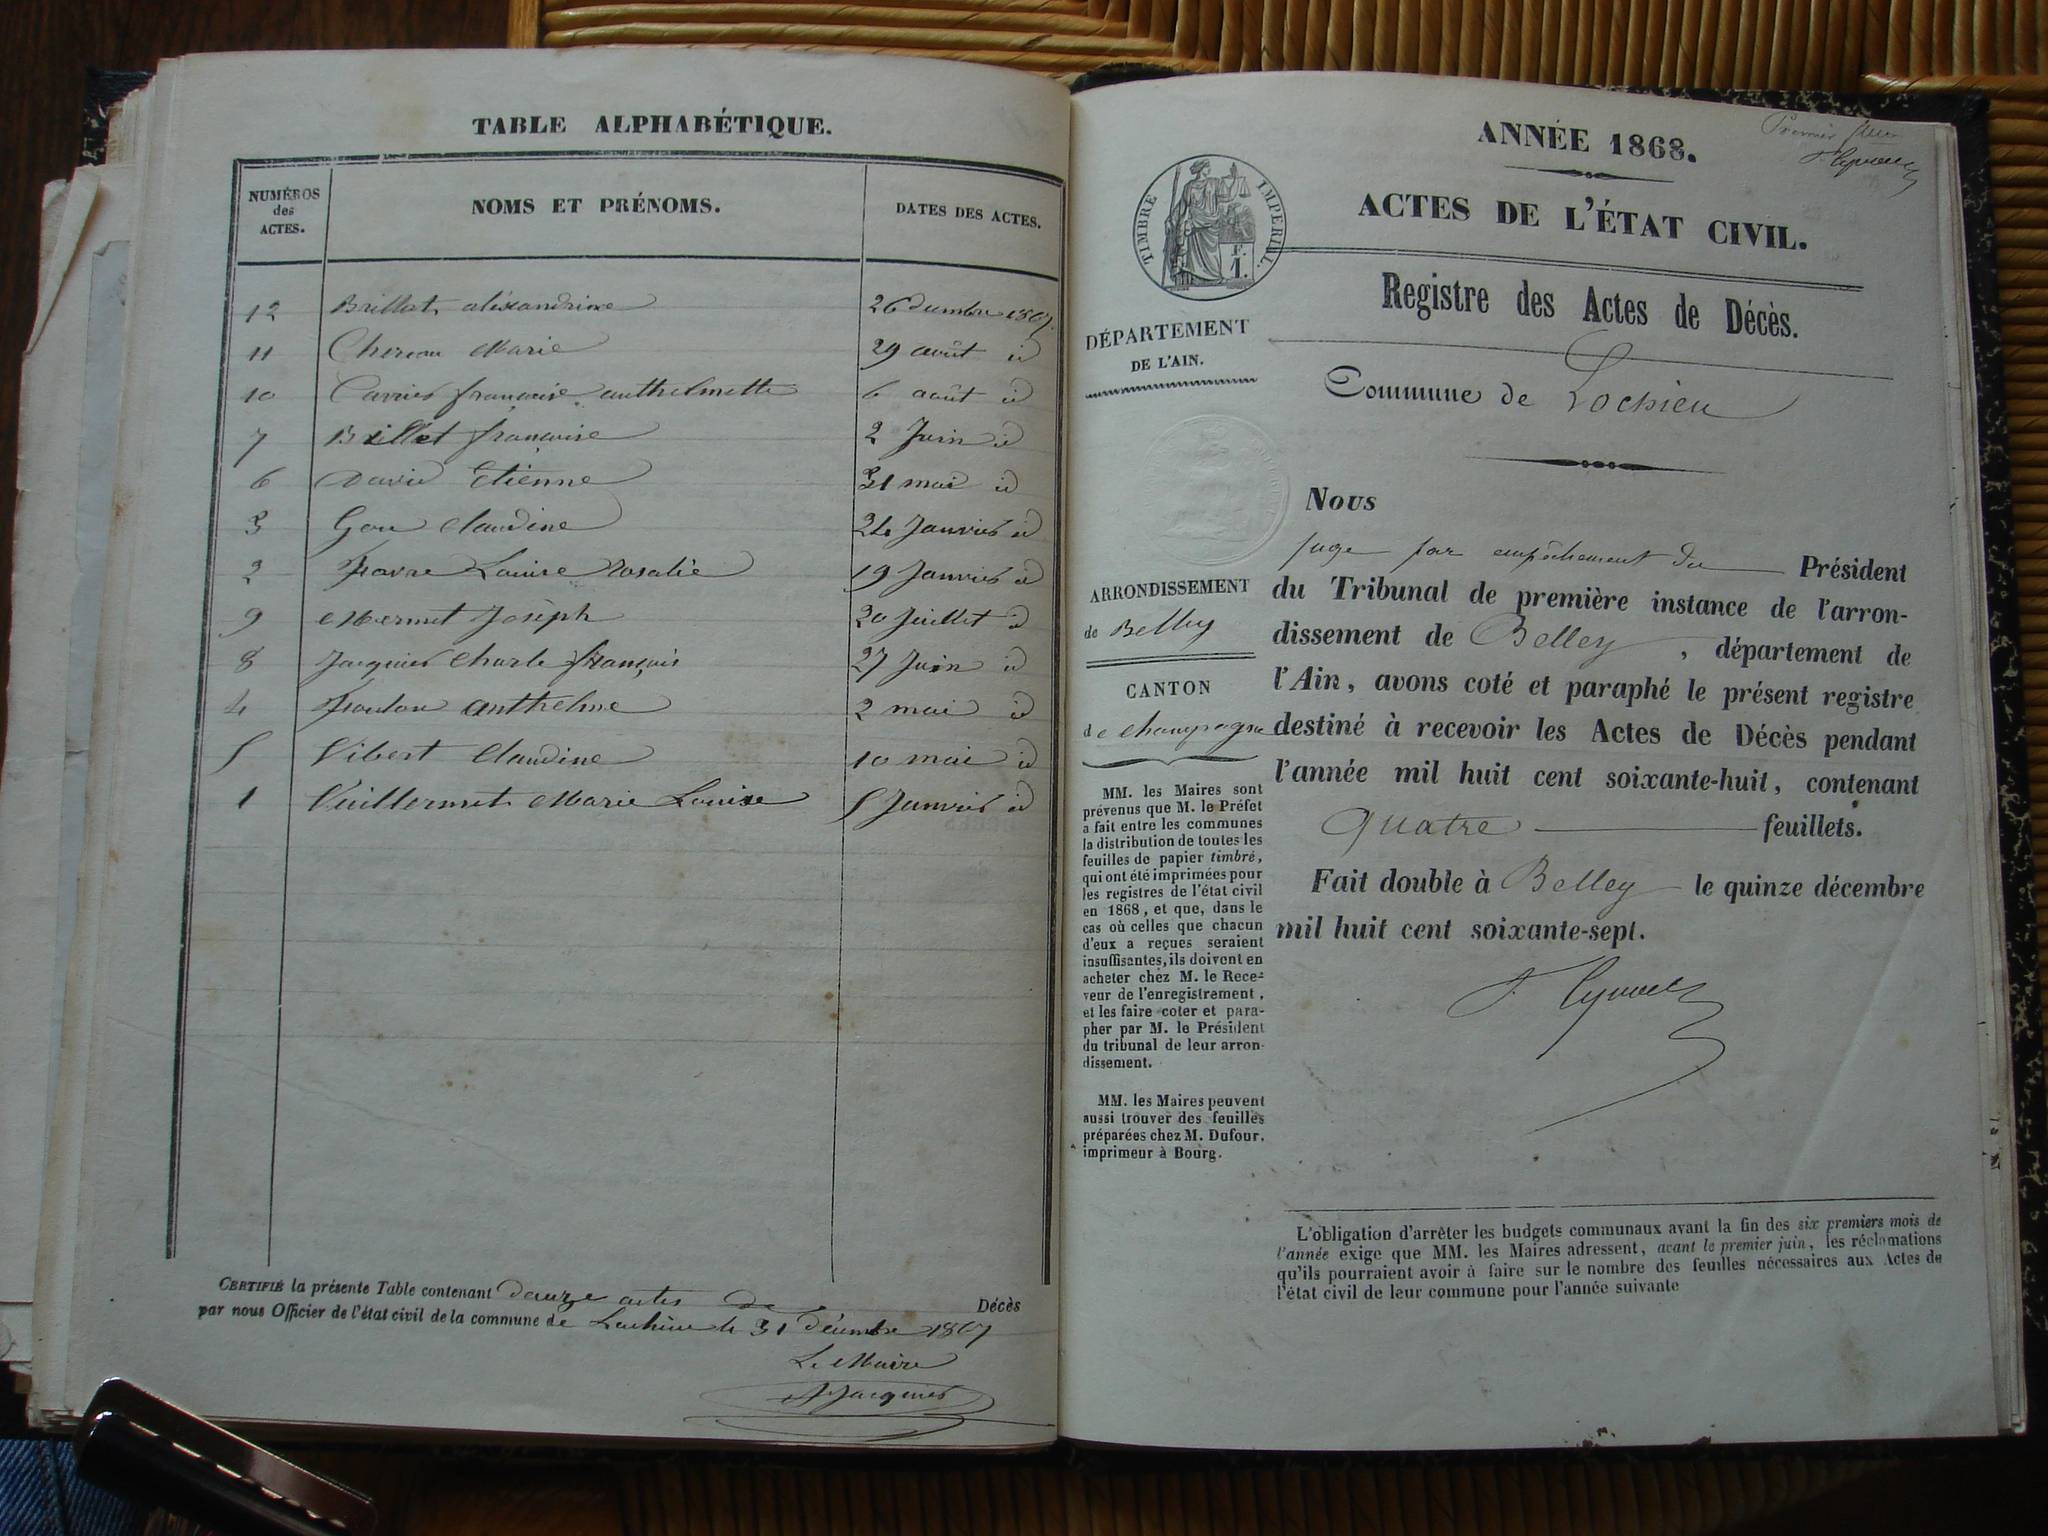 TABLE ALPHABÉTIQUE.
NUMÉROS des ACTES. NOMS ET PRÉNOMS. DATES DES ACTES.
12 Brillat alexandrine 26 1867
11 Marie 29 août id
10 françoise anthelmette 6 août id
7 Brillet françoise 2 Juin id
6 David Etienne 31 mai id
3 Gou Claudine 24 Janvier id
2 Favre Louise Rosalie 19 Janvier id
9 Mermet Joseph 20 Juillet id
8 Jacquier Charle françois 27 Juin id
4 anthelme 2 mai id
5 Vibert Claudine 10 mai id
1 Vuillermet Marie Louise 5 Janvier id
CERTIFIÉ la présente Table contenant douze actes de Décès
par nous Officier de l'état civil de la commune de Lochieu le 31 décembre 1867
Le Maire
Jacquier
Premier
ANNÉE 1868.
ACTES DE L'ÉTAT CIVIL.
TIMBRE IMPERIAL.
F.
1.
Registre des Actes de Décès.
DÉPARTEMENT
DE L'AIN.
Commune de Lochieu
Nous
juge par empêchement du Président
du Tribunal de première instance de l'arron-
dissement de Belley, département de
l'Ain, avons coté et paraphé le présent registre
destiné à recevoir les Actes de Décès pendant
l'année mil huit cent soixante-huit, contenant
quatre feuillets.
Fait double à Belley le quinze décembre
mil huit cent soixante-sept.
ARRONDISSEMENT
de Belley
CANTON
de Champagne
MM. les Maires sont
prévenus que M. le Préfet
a fait entre les communes
la distribution de toutes les
feuilles de papier timbré,
qui ont été imprimées pour
les registres de l'état civil
en 1868, et que, dans le
cas où celles que chacun
d'eux a reçues seraient
insuffisantes, ils doivent en
acheter chez M. le Rece-
veur de l'enregistrement,
et les faire coter et para-
pher par M. le Président
du tribunal de leur arron-
dissement.
MM. les Maires peuvent
aussi trouver des feuilles
préparées chez M. Dufour,
imprimeur à Bourg.
L'obligation d'arrêter les budgets communaux avant la fin des six premiers mois de
l'année exige que MM. les Maires adressent, avant le premier juin, les réclamations
qu'ils pourraient avoir à faire sur le nombre des feuilles nécessaires aux Actes de
l'état civil de leur commune pour l'année suivante